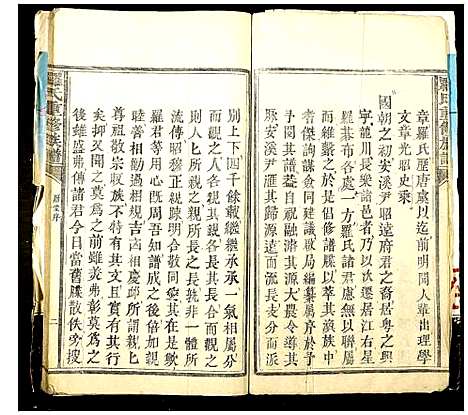 章羅氏歷唐宋以迄前明間人輩出理學
文章光昭史乘
國朝之初安溪尹昭遠府君之裔居粵之興
寧龍川長樂諸邑者乃以次遷居江右吳
羅棊布各處一方羅氏諸君思以聯屬
而維繫之於是倡修譜牒凡其族之賢
者傑詢謀僉同設局編纂屬序于予
予閱其譜敬悉其源大農令
豚安溪尹滙其歸源遠而流長支分而派
別上下四千餘載繼繼承承一氣相屬分
而觀之各親其親各長其長合而觀之
則人匕所親之親所長之長莫非一體所
流傳昭穆正親疎明合散同奐其在斯乎
羅君等毋曰吾周知譜成之後而不益思
睦善相勸過相規吉凶相慶卹所謂敬祖
尊宗收族不特有其文且實有其行
矣抑又聞之莫爲之前雖美弗彰莫爲之
後雖盛弗傳諸君今日當舊牒散佚旁搜
羅氏重修族譜
二